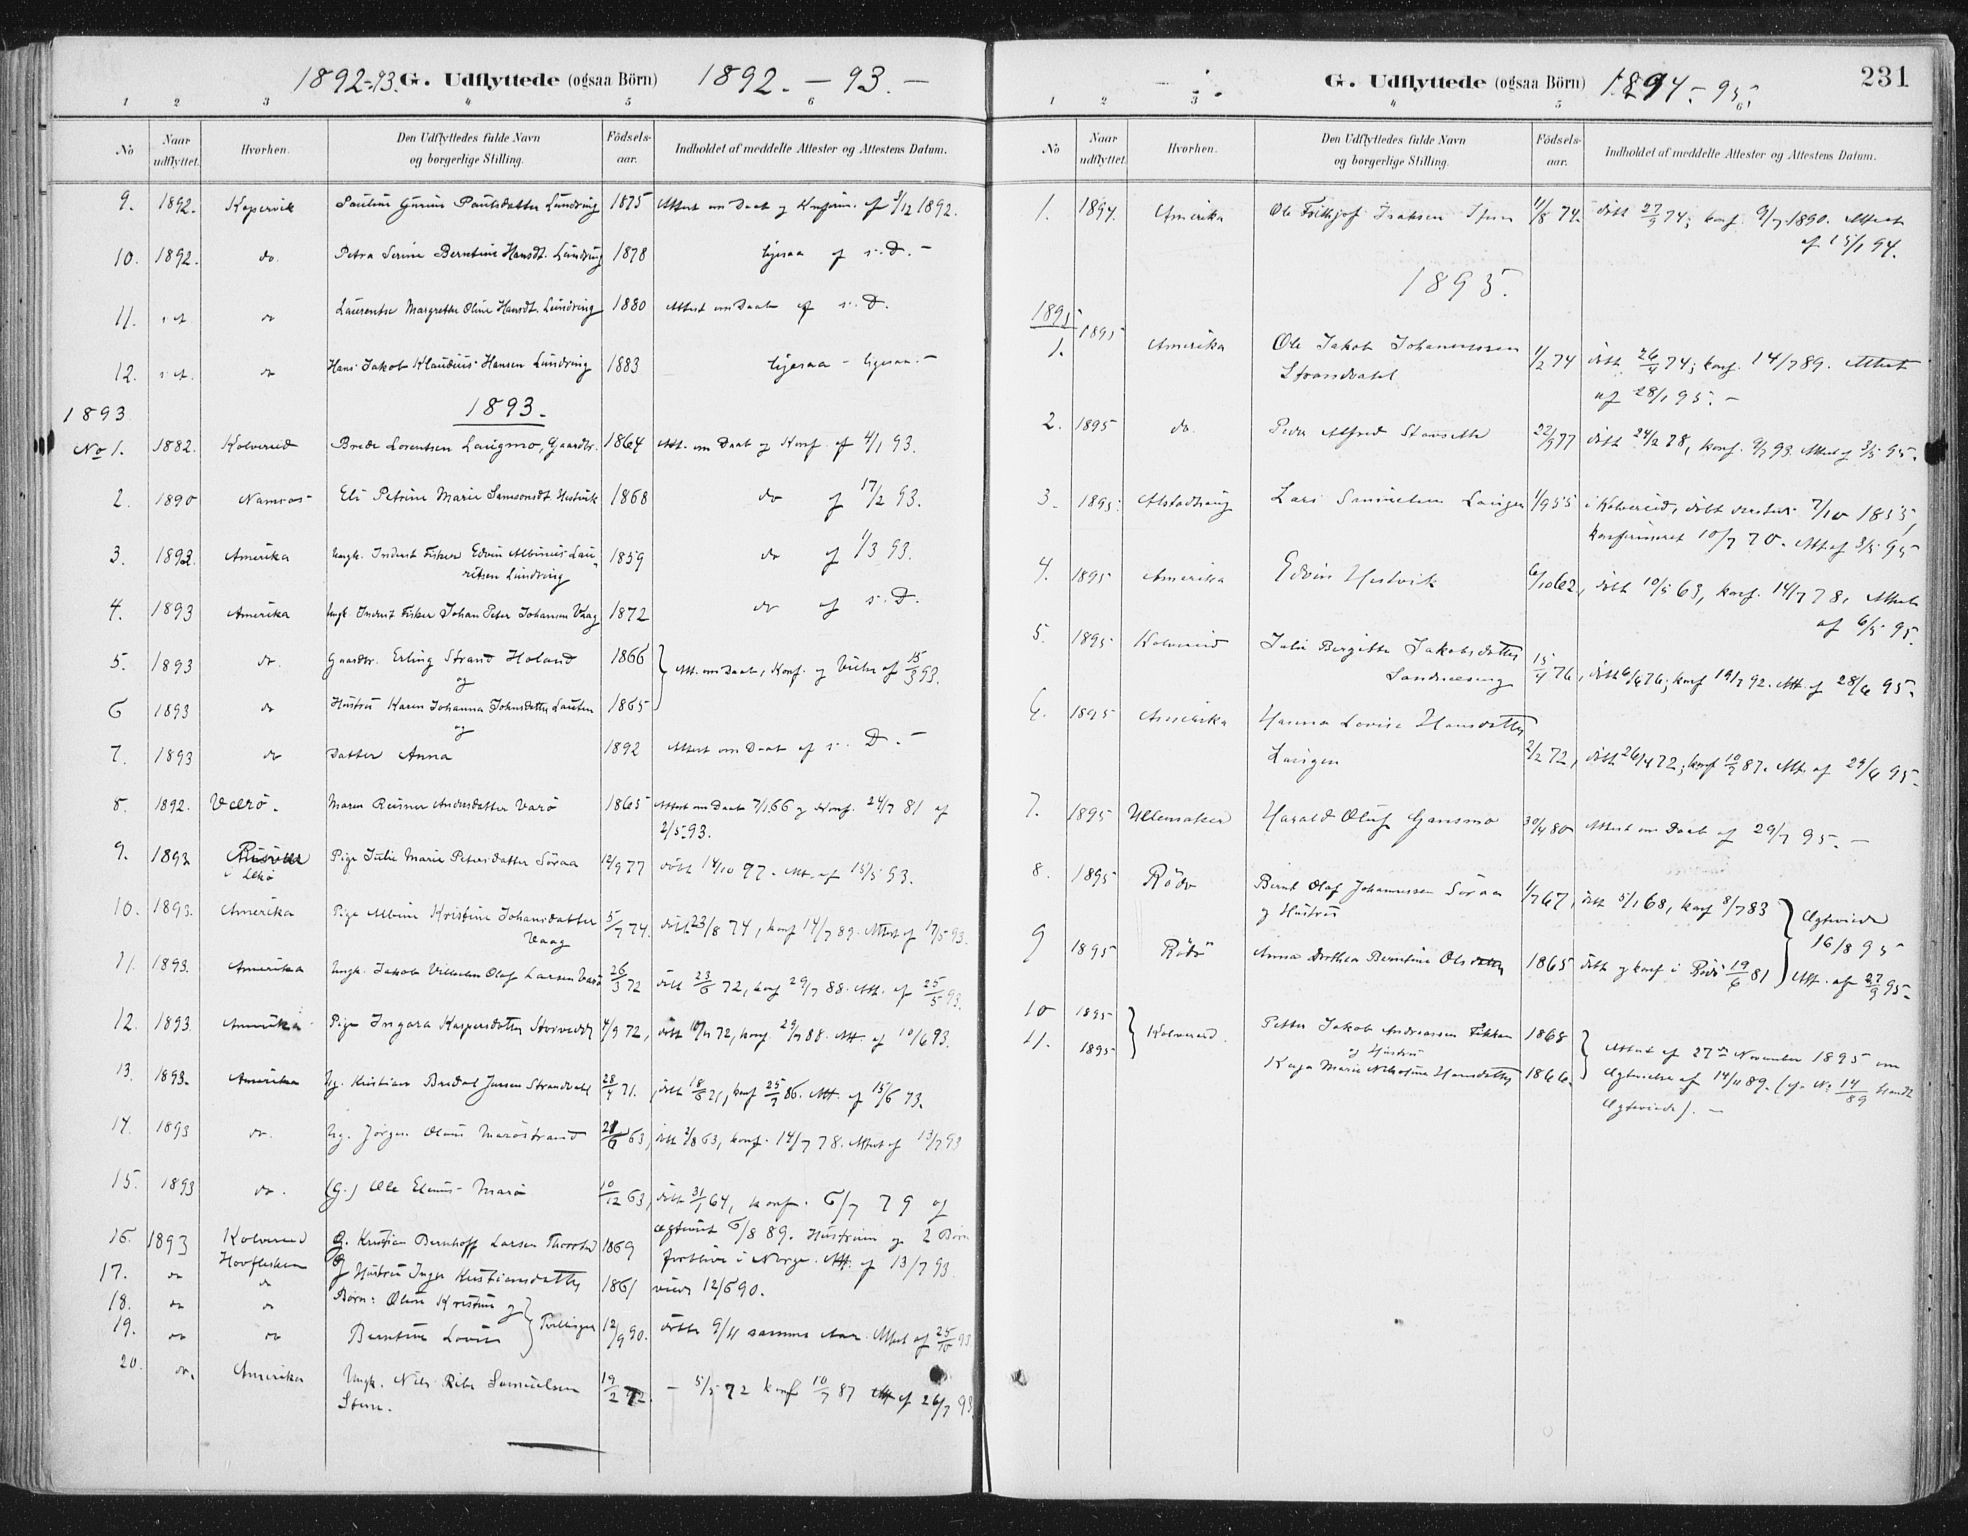 1892-93. G. Udflyttede (ogsaa Börn) 1892. - 93. -
1 2 3 4 5 6
No Naar udflyttet. Hvorhen. Den Udflyttedes fulde Navn og borgerlige Stilling. Födsels-aar. Indholdet af meddelte Attester og Attestens Datum.
9. 1892. Kopervik Pauline Gurine Paulsdatter Lundring 1875 Attest om Daab og Konfirm. af 3/12 1892.
10. 1892. do. Petra Serine Berntine Hansdt. Lundring 1878 ligesaa af s. D. -
11. do Laurentse Margrethe Oline Hansdt. Lundring 1880 Attest om Daab af s. D.
12. do Hans Jakob Klaudius Hansen Lundring 1883 ligesaa - ligesaa. -
1893 1893.
No 1. 1882. Kolvereid Brede Lorentsen Laugmo, Gaardbr. 1864 Att. om Daab og Konf. af 4/1 93.
2. 1890 Namsos Eli Petrine Marie Samsonsdt. Hestvik 1868 do af 17/2 93.
3. 1892. Amerika Ungk. Inderst Fisker Edvin Albinus Lau-
ritsen Lundring 1859 do af 1/3 93.
4. 1893 Amerika Ungk Inderst Fisker Johan Peter Johansen Vaag 1872 do af s. D.
5. 1893 do. Gaardbr. Erling Strand Holand 1866 Att. om Daab, Konf. og Vielse af 15/3 93.
og
6 1893 do Hustru Karen Johanna Johnsdatter 1865
og
7. 1893 do Datter Anna 1892 Attest om Daab af s. D. -
8. 1892. Værö. Maren Andersdatter Varö 1865 Attest om Daab 7/1 66 og Konf. 24/7 81 af
2/5 93.
9. 1893 i Lekö Pige Julie Marie Petersdatter Söraa 12/9 77 döbt 14/10 77. Att. af 15/5 93.
10. 1893. Amerika Pige Albine Kristine Johansdatter
Vaag 5/7 74. döbt 23/8 74, konf 14/7 89. Attest af 17/5 93.
11. 1893. Amerika Ungk. Jakob Vilhelm Olaf Larsen Varö 26/3 72 döbt 23/6 72, konf 29/7 88. Att. af 25/5 93.
12. 1893. Amerika Pige Ingara Kaspersdatter 4/9 72, döbt 72, konf. 29/7 88. Att. af 10/6 93.
13. 1893. Amerika Ug. Kristian Bredal Jensen Strandvold 28/4 71. döbt 18/6 71, konf 25/7 86. Att. af 15/6 93.
14. 1893 do. Ug. Jörgen Olaus Maröstrand 21/6 63, döbt 2/8 63, konf. 14/7 78. Attest af 13/7 93
15. 1893 do. (G.) Ole Elenus Marö 10/12 63, döbt 31/1 64, konf. 6/7 79 og
ægteviet 6/8 89. Hustruen og 2 Börn
forblive i Norge. Att. af 13/7 93.
16. 1893 Kolvereid G. Kristian Bernhoff Larsen 1869
Hovflesken
17. do do Hustru Inger Kristiansdatter 1861 viede 12/6 90.
18. do do Börn: Oline Kristine og
19. do do Berntine Lovise Tvillinger 12/9 90. döbte 9/11 samme Aar. Attest af 25/10 93
20. do. Amerika Ungk. Nils Ribe Samuelsen
Steen. 19/2 72. - 5/5 72 konf 10/7 87 Att af 26/7 93.
G. Udflyttede (ogsaa Börn) 1894 - 95. 231
1 2 3 4 5 6
No Naar udflyttet. Hvorhen. Den Udflyttedes fulde Navn og borgerlige Stilling. Födsels-aar. Indholdet af meddelte Attester og Attestens Datum.
1. 1894. Amerika Ole Frithjof Isaksen Steen 11/8 74. döbt 27/9 74; konf. 9/7 1890. Attest
af 15/1 94.
1895.
1895
1. 1895 Amerika Ole Jakob Johannessen
Strandvold 1/2 74 döbt 26/4 74; konf. 14/7 89. Attest
af 28/1 95. -
2. 1895 do. Peder Alfred Storsethe 22/9 77 döbt 24/2 78, konf. 9/7 93. Attest af 3/5 95.
3. 1895. Alstadhaug Lars Samuelsen Laugen 1/9 55 i Kolvereid, döbt dersteds 7/10 1855,
konfirmeret 10/7 70. Att af 3/5 95
4. 1895 Amerika Edvin Hestvik 6/10 62, döbt 10/5 63, konf. 14/7 78, Attest
af 6/5 95.
5. 1895 Kolvereid Julie Bergitte Jakobsdatter
15/4 76, döbt 76; konf 19/7 92. Att. af 28/6 95.
6. 1895 Amerika Hanna Lovise Hansdatter
Laugen 2/2 72, döbt 26/4 72; konf 10/7 87. Att. af 29/6 95.
7. 1895 Ullensaker Harald Oluf Gansmo 30/4 80 Attest om Daab af 29/7 95. -
8. 1895 Rödö Bernt Olaf Johannessen Söraa
og Hustru 1/7 67, döbt 5/1 68, konf 8/7 83 Ægteviede
16/8 95
9 1895 Rödö Anna Dorthea Berntine Olsdatter 1865 döbt og konf i Rödö 19/6 81 Att. af 27/9 95.
10 1895 Kolvereid. Petter Jakob Andreassen 1868
og Hustru
11. 1895 Kaja Marie Nikoline Hansdatter 1866. Attest af 27de November 1895 om
Ægtevielse af 14/11 89. (jr. No 14/89
Ægteviede). -